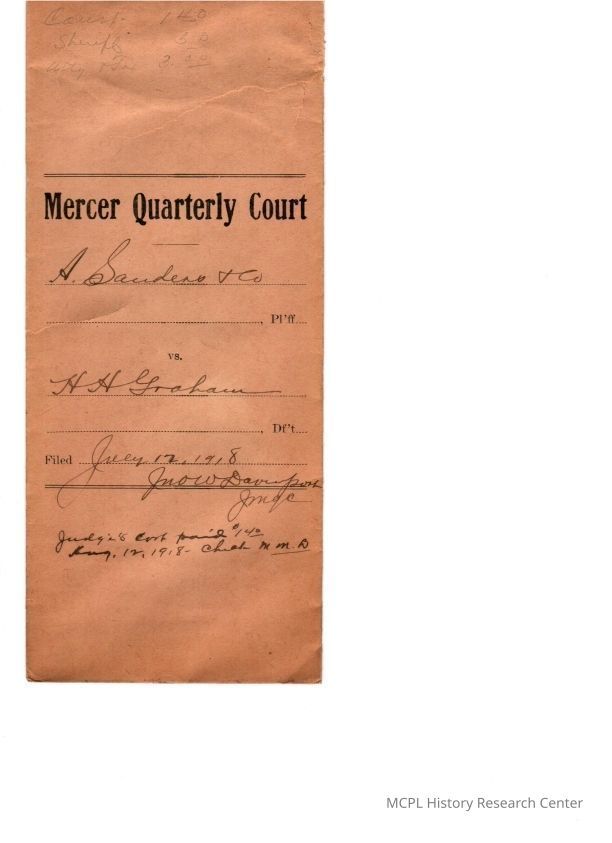 Court 1 40
Sheriff 60
Atty + Tax 3.00
Mercer Quarterly Court
A. Sanders & Co
, Pl'ff
vs.
H H Graham
, Df't
Filed July 12, 1918
Jno W Davenport
JMQC
Judge's Cost paid $1 40
Aug. 12, 1918 - Check M M. D
MCPL History Research Center